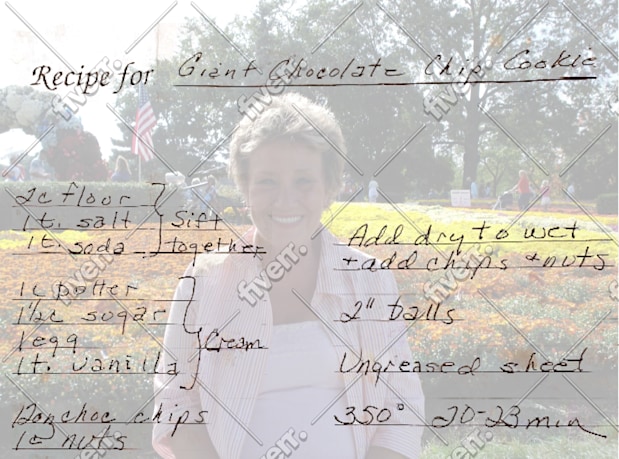 Recipe for Giant Chocolate Chip Cookie
2c flour
1t. salt
1t. soda
Sift
together
1c butter
1½c sugar
1egg
1t. vanilla
Cream
12oz choc chips
1c nuts
Add dry to wet
+ add chips + nuts
2" balls
Ungreased sheet
350° 20-23 min
fiverr.
fiverr.
fiverr.
fiverr.
fiverr.
fiverr.
fiverr.
fiverr.